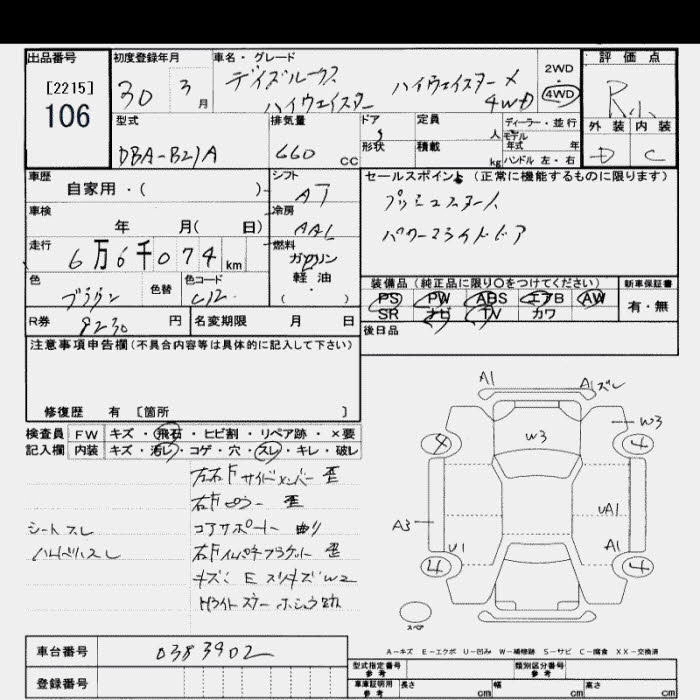 出品番号
[2215]
106
初度登録年月
30 3月
車名・グレード
デイズルークス ハイウェイスターメ
ハイウェイスター 4WD
2WD
・
4WD
評価点
外装 内装
D C
型式
DBA-B21A
排気量
660 CC
ドア
形状
定員 人
積載 kg
ディーラー・並行
モデル年式 年
ハンドル 左・右
車歴
自家用・( )
シフト
AT
セールスポイント (正常に機能するものに限ります)
プッシュスタート
パワースライドドア
車検
年 月( 日)
冷房
AAC
走行
6万6千074km
燃料
ガソリン
・
軽油
・
( )
色
ブラウン
色替
色コード
C12
装備品 (純正品に限り○をつけてください)
PS PW ABS エアB AW
SR ナビ TV カワ
新車保証書
有・無
R券
9230円
名変期限 月 日
後日品
注意事項申告欄(不具合内容等は具体的に記入して下さい)
修復歴 有 [箇所 ]
検査員 FW キズ・飛石・ヒビ割・リペア跡・×要
記入欄 内装 キズ・汚レ・コゲ・穴・スレ・キレ・破レ
左右Fサイドメンバー 歪
右Fピラー 歪
シートスレ
コアサポート 曲り
ハンドルスレ
右Fインパネブラケット 歪
キズ、E スリキズ W2
A1
A1ズレ
W3
W3
4
4
A3
UA1
U1
A1
4
4
スペア
A-キズ E-エクボ U-凹み W-補修跡 S-サビ C-腐食 XX-交換済
車台番号
0383902
登録番号
型式指定番号
参考
類別区分番号
参考
車庫証明用
参考
長さ cm
幅 cm
高さ cm